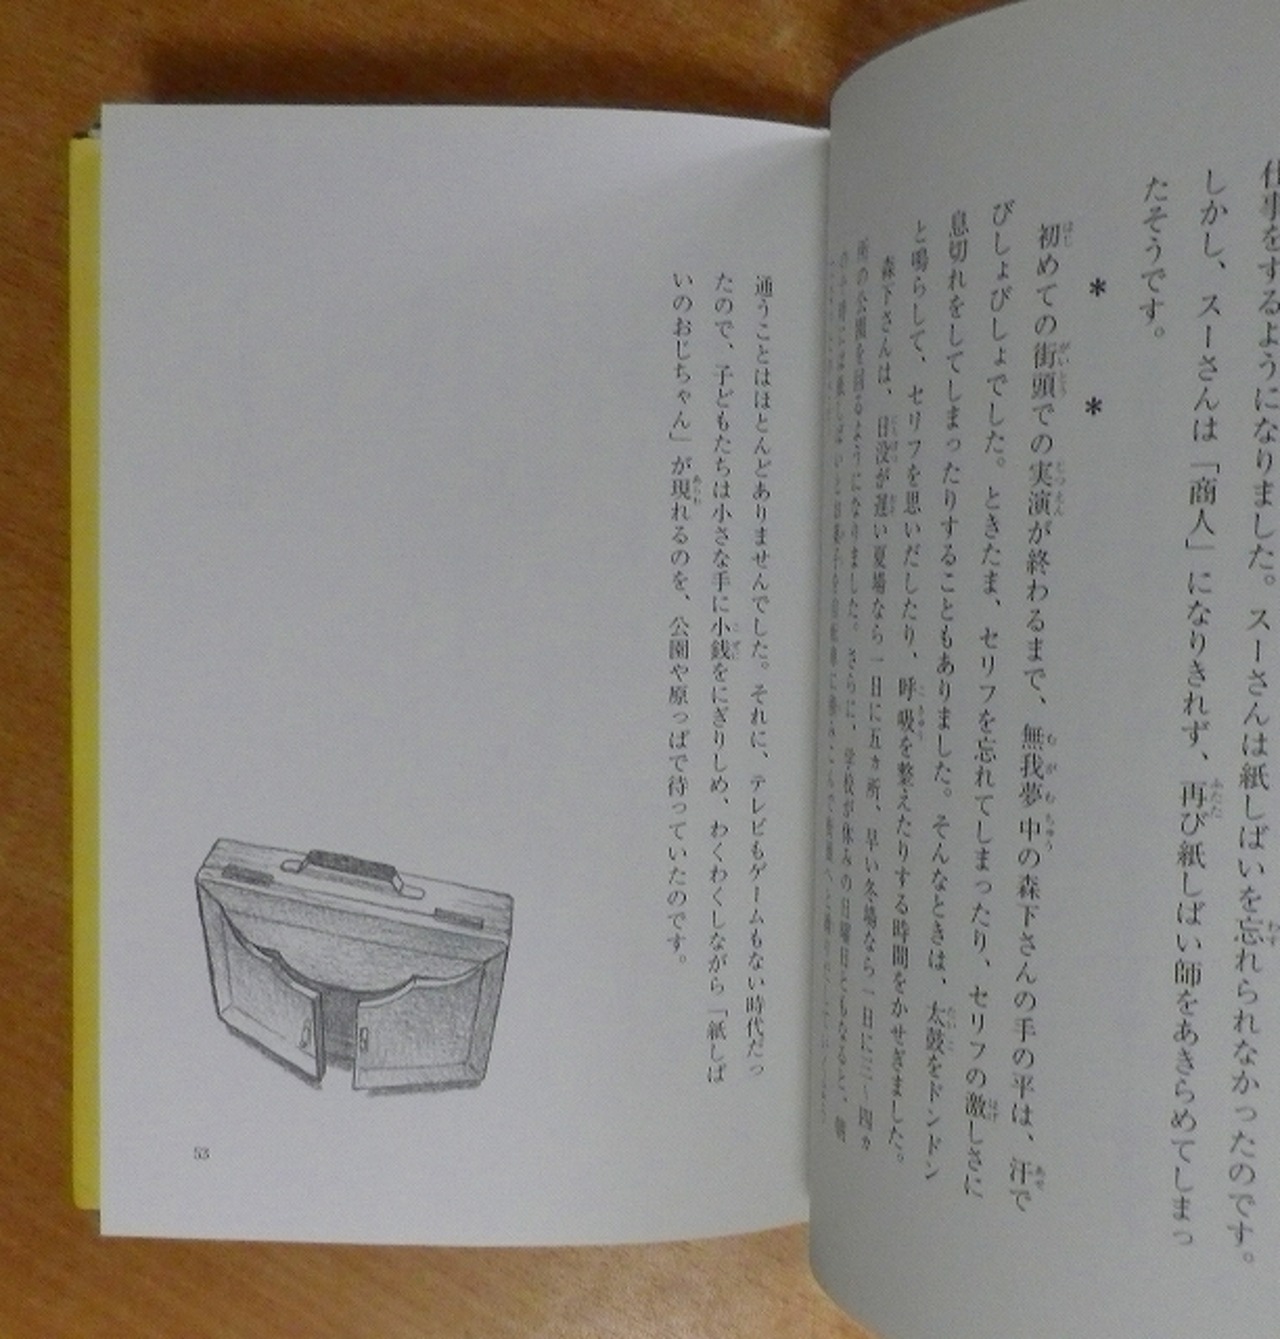 仕事をするようになりました。スーさんは紙しばいを忘れられなかったのです。
しかし、スーさんは「商人」になりきれず、再び紙しばい師をあきらめてしまっ
たそうです。
＊　＊
初めての街頭での実演が終わるまで、無我夢中の森下さんの手の平は、汗で
びしょびしょでした。ときたま、セリフを忘れてしまったり、セリフの激しさに
息切れをしてしまったりすることもありました。そんなときは、太鼓をドンドン
と鳴らして、セリフを思いだしたり、呼吸を整えたりする時間をかせぎました。
森下さんは、日没が遅い夏場なら一日に五ヵ所、早い冬場なら一日に三〜四ヵ
所の公園を回るようになりました。さらに、学校が休みの日曜日
通うことはほとんどありませんでした。それに、テレビもゲームもない時代だっ
たので、子どもたちは小さな手に小銭をにぎりしめ、わくわくしながら「紙しば
いのおじちゃん」が現れるのを、公園や原っぱで待っていたのです。
53